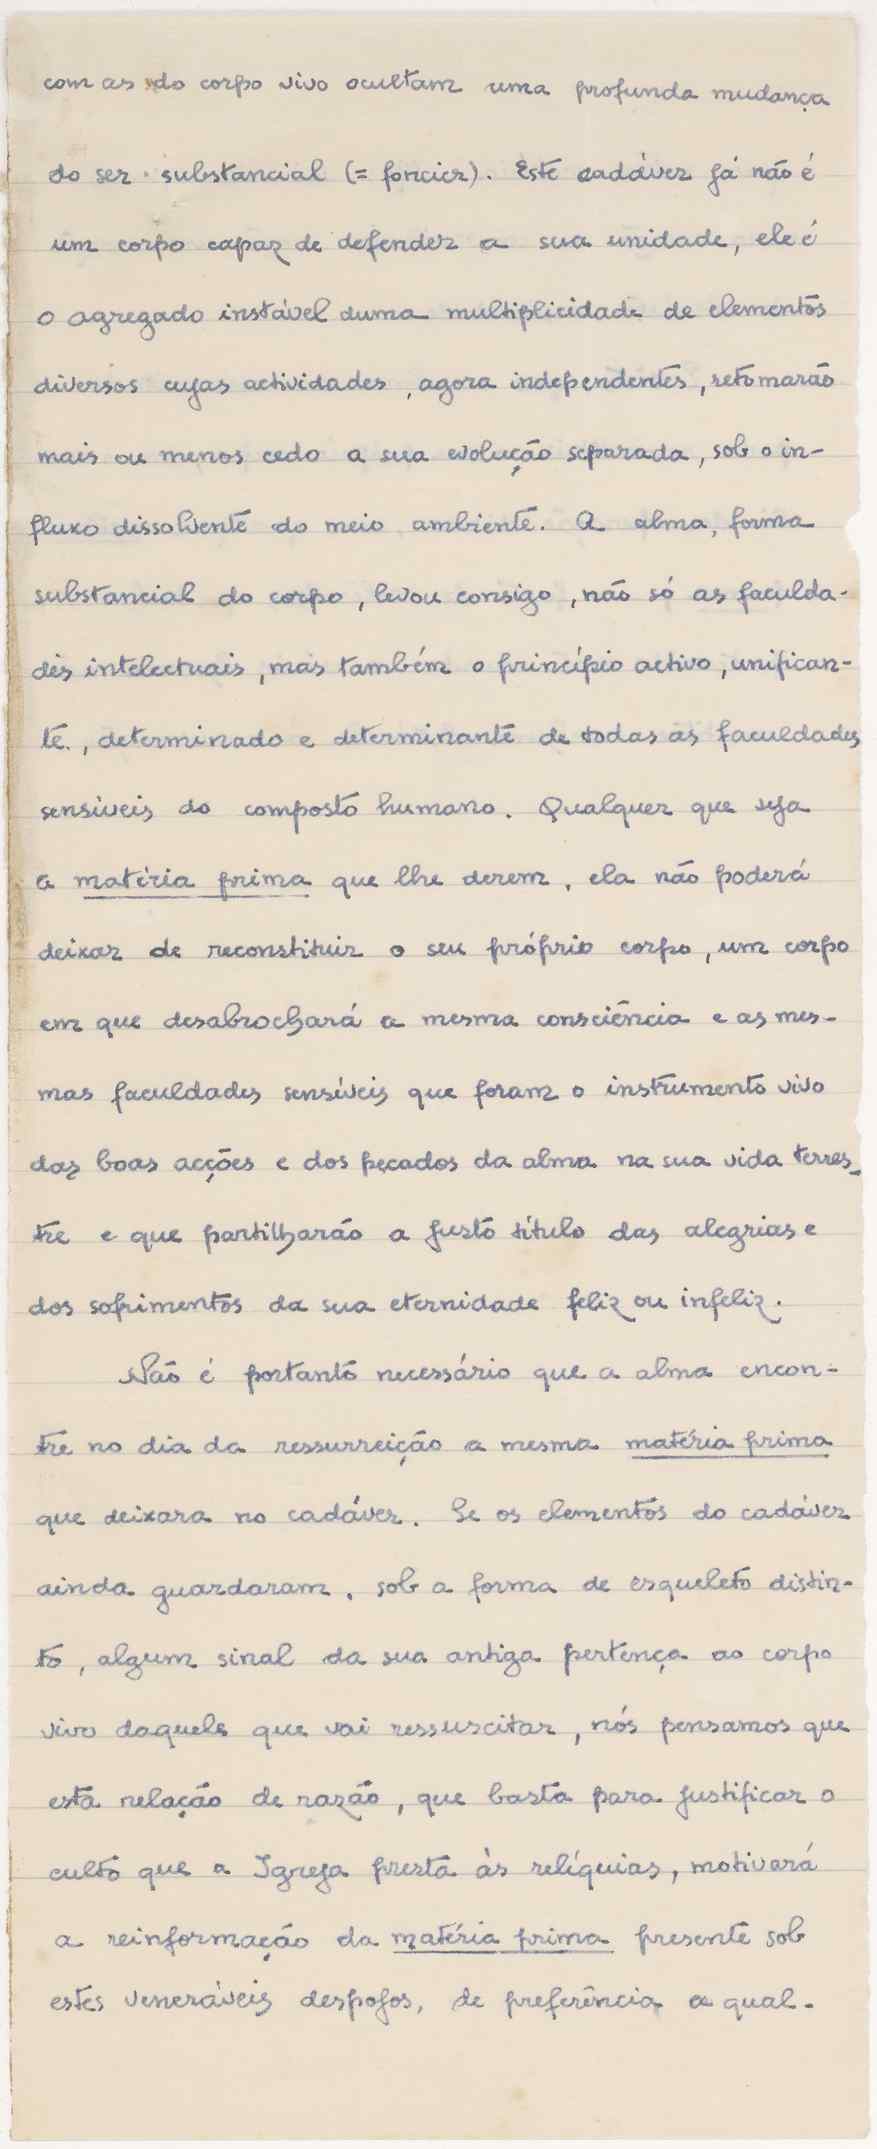 com as do corpo vivo ocultam uma profunda mudança
do ser substancial (= foncier). Este cadáver já não é
um corpo capaz de defender a sua unidade, ele é
o agregado instável duma multiplicidade de elementos
diversos cujas actividades, agora independentes, retomarão
mais ou menos cedo a sua evolução separada, sob o in-
fluxo dissolvente do meio ambiente. A alma, forma
substancial do corpo, levou consigo, não só as faculda-
des intelectuais, mas também o princípio activo, unifican-
te, determinado e determinante de todas as faculdades
sensíveis do composto humano. Qualquer que seja
a matéria prima que lhe derem, ela não poderá
deixar de reconstituir o seu próprio corpo, um corpo
em que desabrochará a mesma consciência e as mes-
mas faculdades sensíveis que foram o instrumento vivo
das boas acções e dos pecados da alma na sua vida terres-
tre e que partilharão a justo título das alegrias e
dos sofrimentos da sua eternidade feliz ou infeliz.
Não é portanto necessário que a alma encon-
tre no dia da ressurreição a mesma matéria prima
que deixara no cadáver. Se os elementos do cadáver
ainda guardaram, sob a forma de esqueleto distin-
to, algum sinal da sua antiga pertença ao corpo
vivo daquele que vai ressuscitar, nós pensamos que
esta relação de razão, que basta para justificar o
culto que a Igreja presta às relíquias, motivará
a reinformação da matéria prima presente sob
estes veneráveis despojos, de preferência a qual-